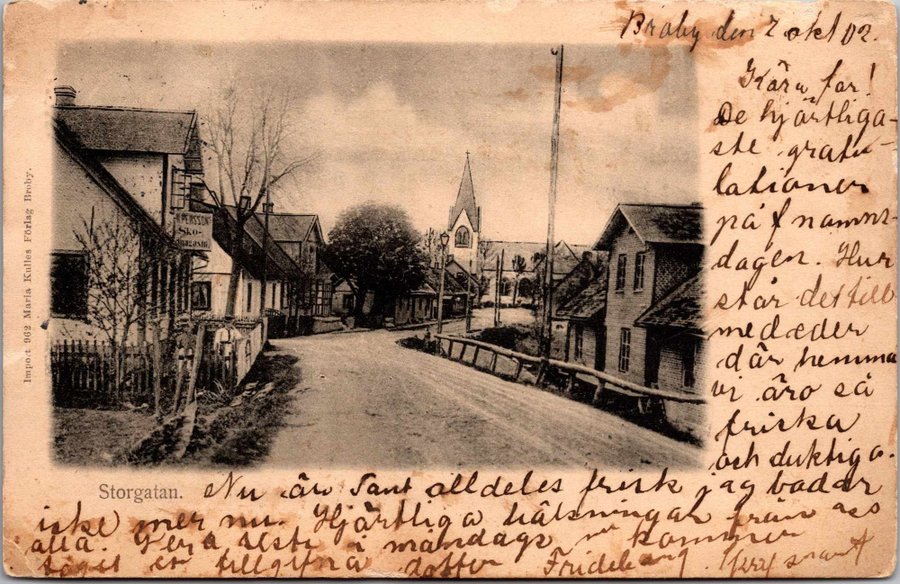 Broby den 2 okt 02.
Kära far!
De hjärtliga-
ste gratu-
lationer
på f namns-
dagen. Hur
står det till
med eder
där hemma
vi äro så
friska
och duktiga.
Import 962 Maria Kulles Förlag Broby.
PERSSON
SKO-
Storgatan.
Nu är Sant alldeles frisk jag badar
icke mer nu. Hjärtliga hälsningar från oss
alla. i måndags kommer
tillgifna dotter